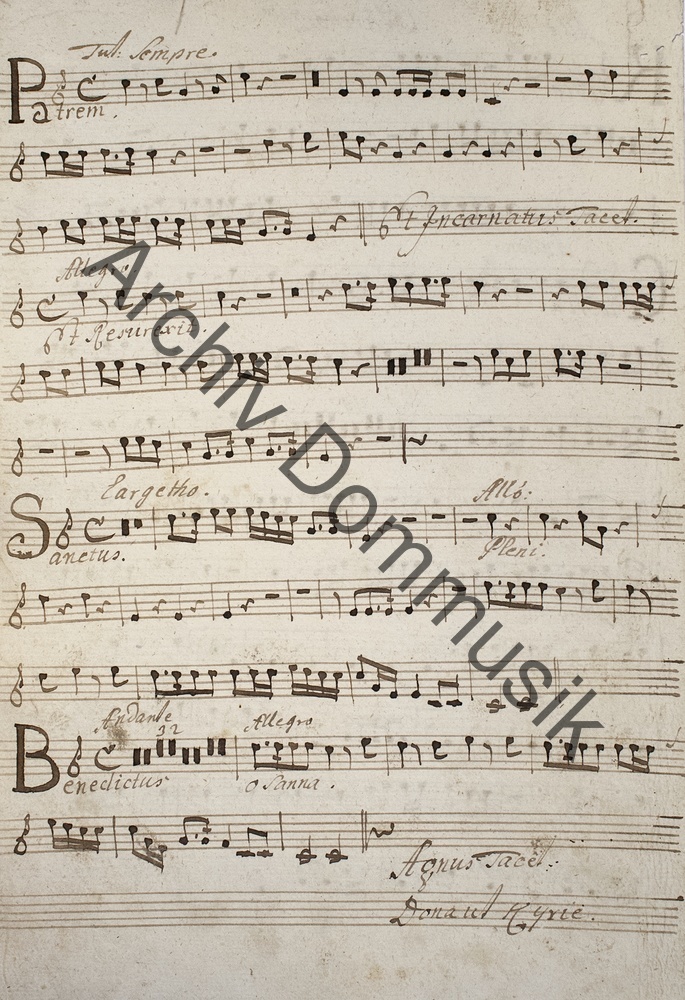 Sempre.
Patrem.
Et Incarnatus Tacet.
Allegro.
Et Resurexit.
Largetho.
Allo:
Sanctus.
Pleni.
Andante
32
Allegro
Benedictus
Osanna.
Agnus Tacet.
Dona ut Kyrie.
Archiv Dommusik